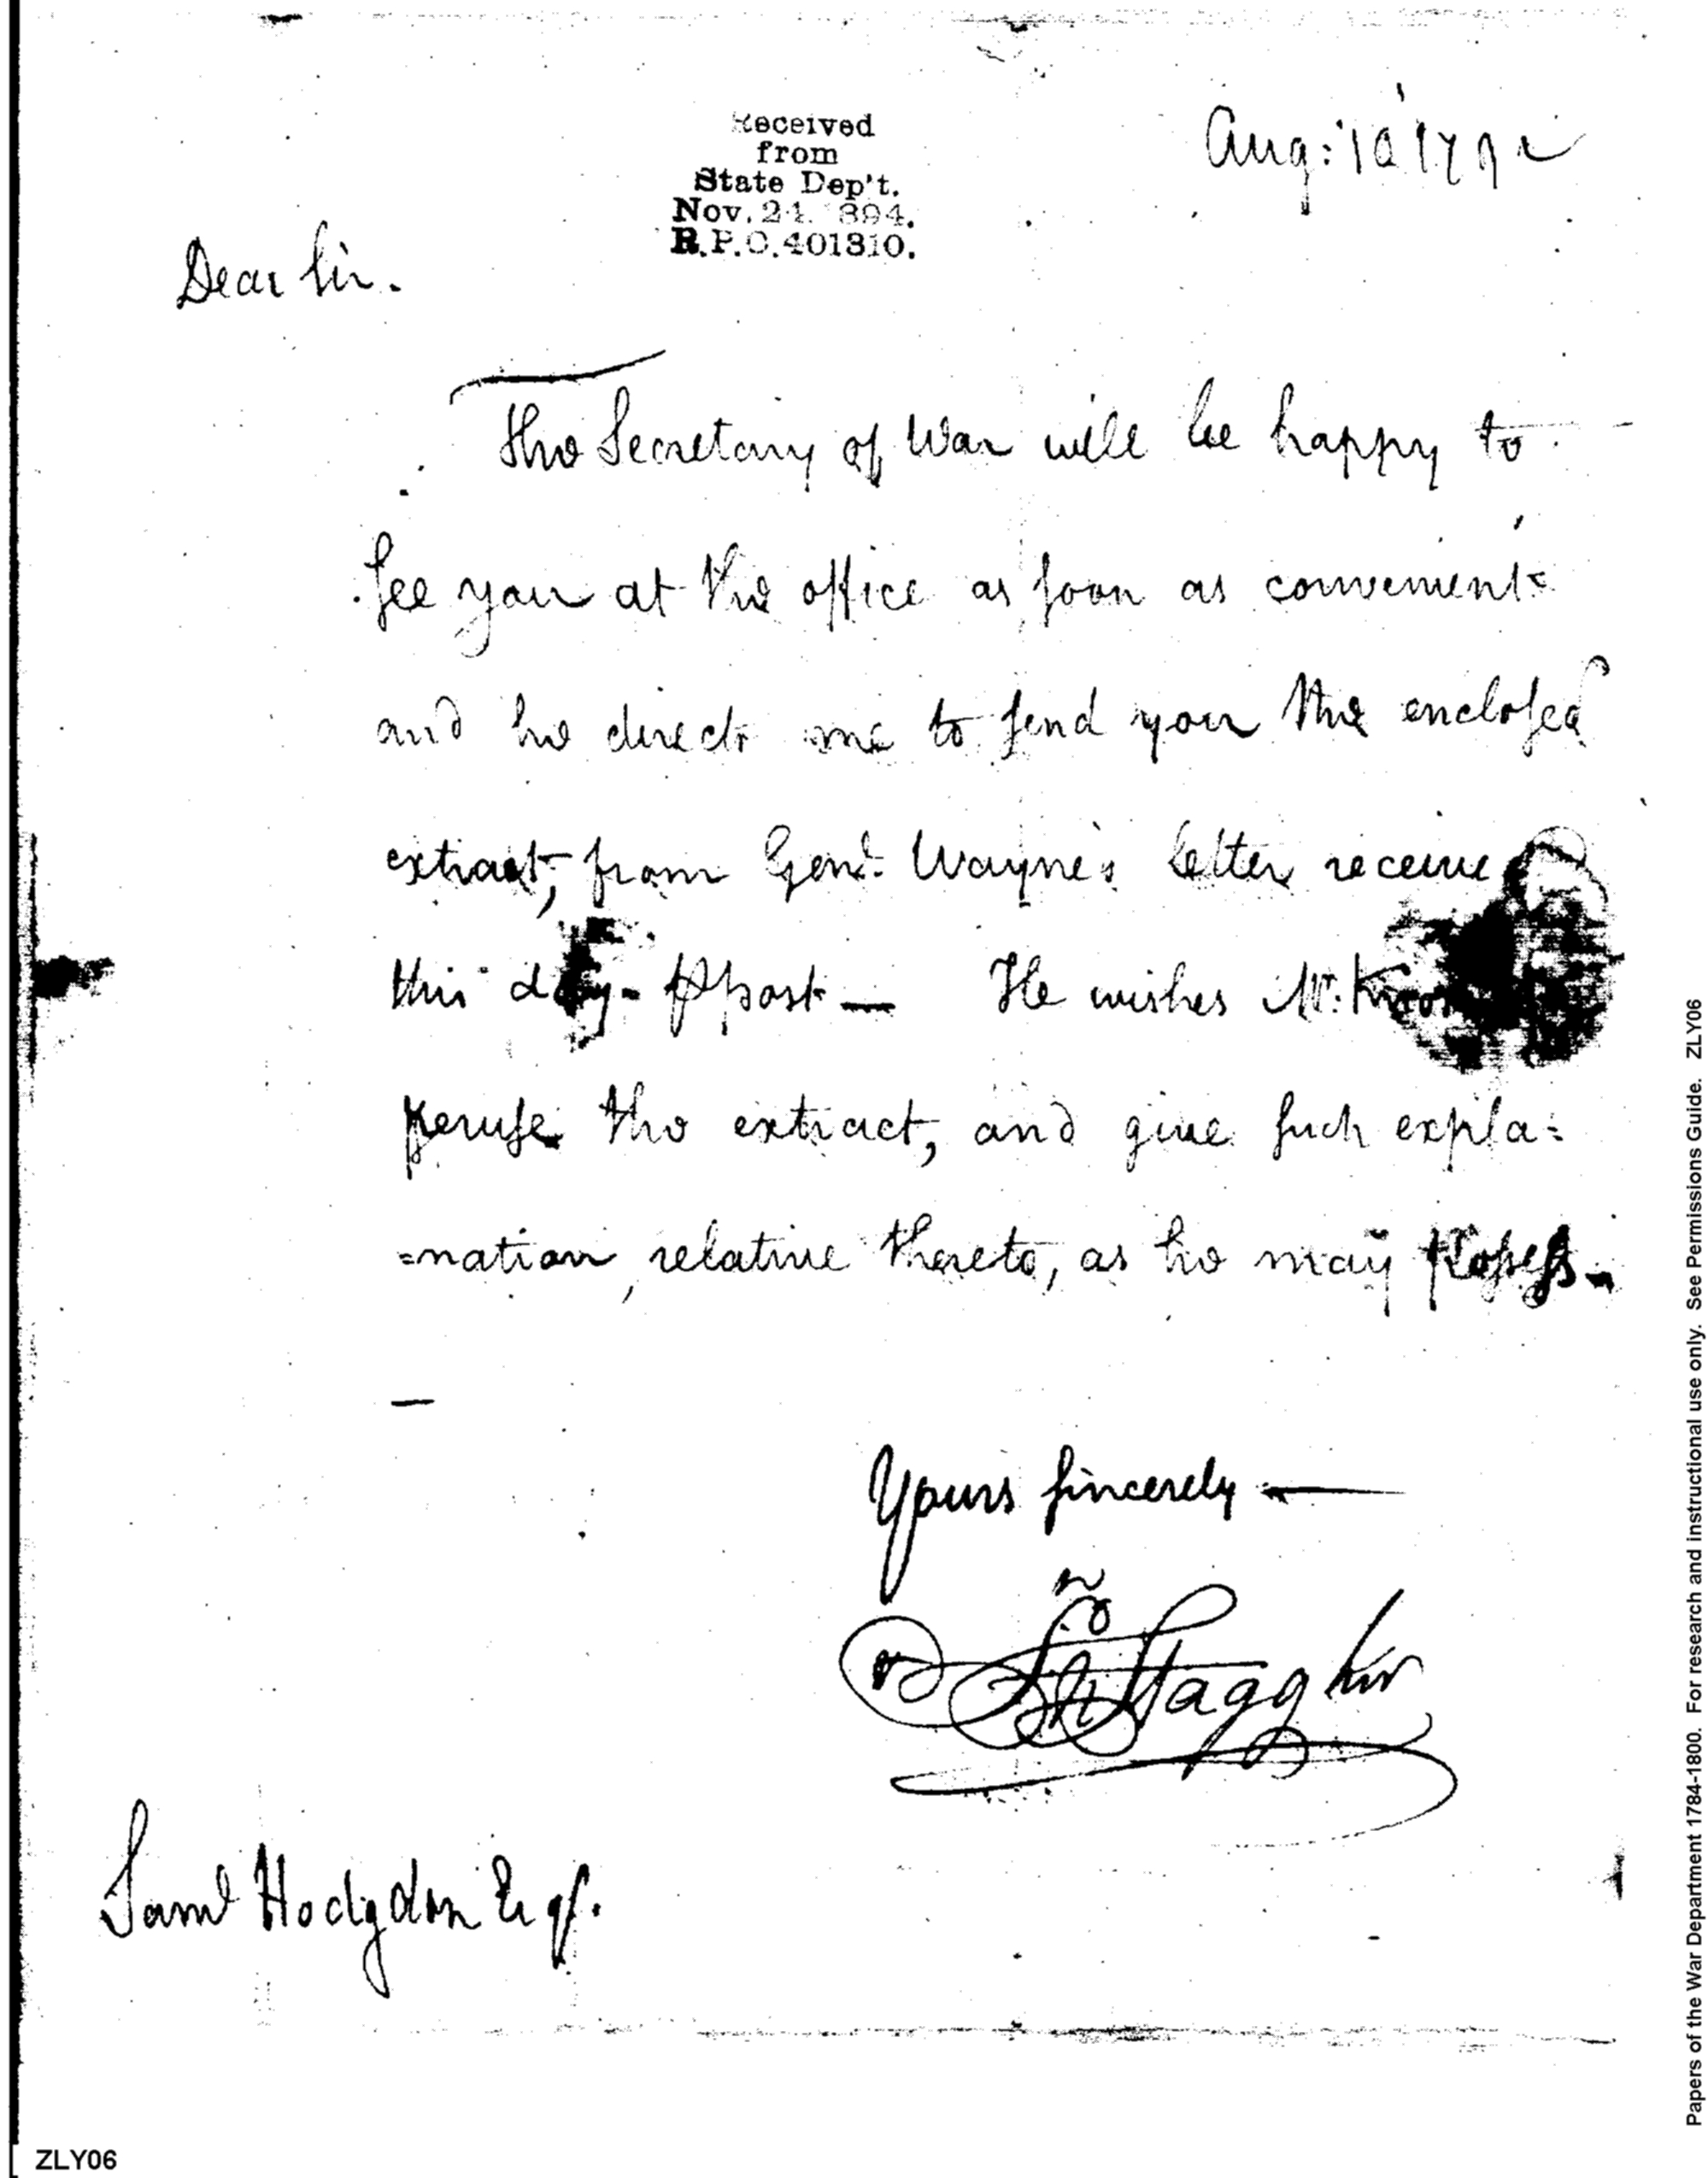 Received
from
State Dep't.
Nov. 24. 1894.
R.P.O. 401310.
Aug: 10 1792
Dear Sir.
The Secretary of War will be happy to
see you at the office as soon as convenient
and he directs me to send you the enclosed
extract, from Genl. Wayne's letter received
this day post — He wishes Mr.
peruse the extract, and give such expla=
=nation, relative thereto, as he may possess.
Yours sincerely —
Jn Stagg Junr
Saml Hodgdon Esqr.
ZLY06
Papers of the War Department 1784-1800. For research and instructional use only. See Permissions Guide. ZLY06